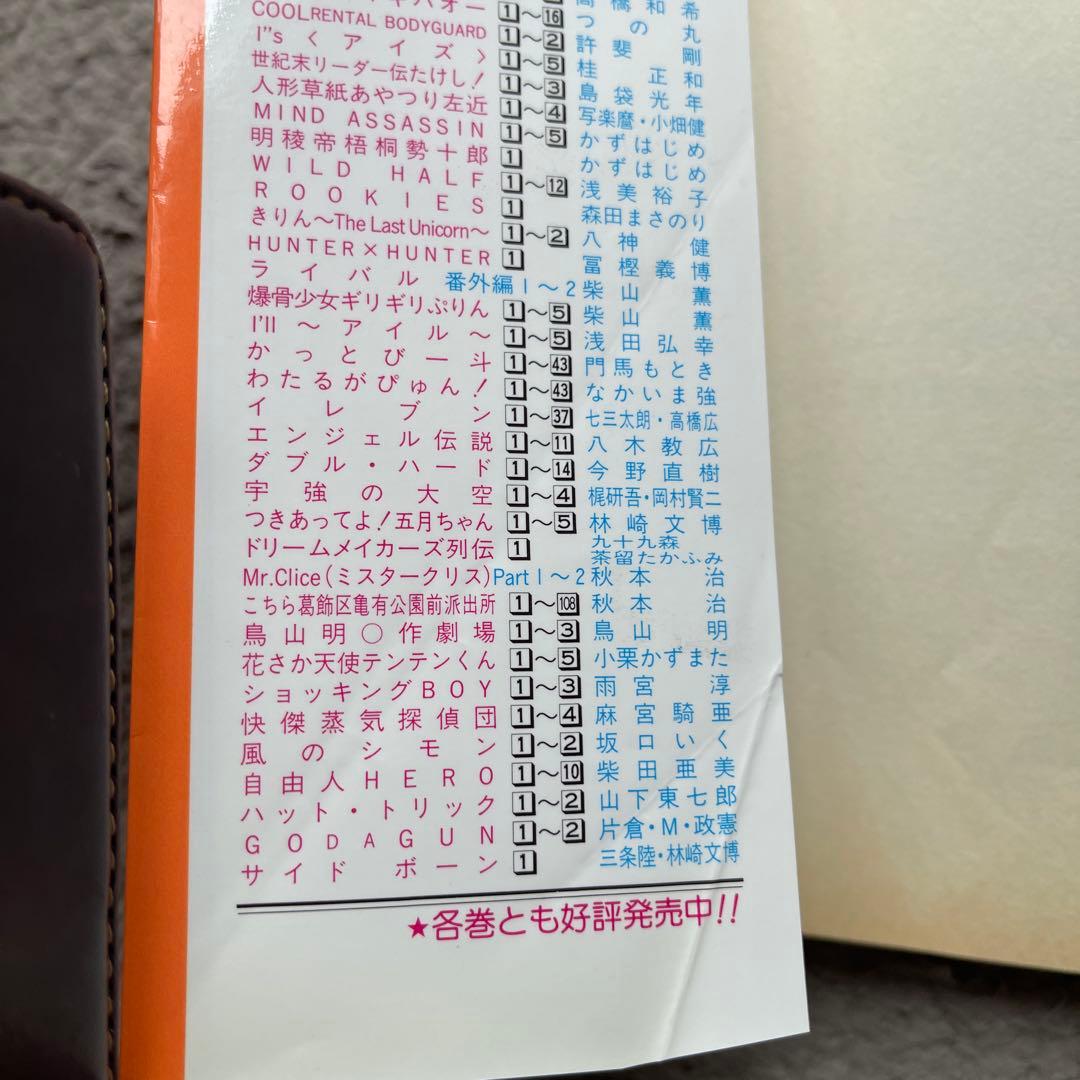 高橋和希
キバオー 1～16 つの丸
COOLRENTAL BODYGUARD 1～2 許斐剛
I"s〈アイズ〉 1～5 桂正和
世紀末リーダー伝たけし! 1～3 島袋光年
人形草紙あやつり左近 1～4 写楽麿・小畑健
MIND ASSASSIN 1～5 かずはじめ
明稜帝梧桐勢十郎 1 かずはじめ
WILD HALF 1～12 浅美裕子
ROOKIES 1 森田まさのり
きりん～The Last Unicorn～ 1～2 八神健
HUNTER×HUNTER 1 冨樫義博
ライバル 番外編1～2 柴山薫
爆骨少女ギリギリぷりん 1～5 柴山薫
I'll～アイル～ 1～5 浅田弘幸
かっとび一斗 1～43 門馬もとき
わたるがぴゅん! 1～43 なかいま強
イレブン 1～37 七三太朗・高橋広
エンジェル伝説 1～11 八木教広
ダブル・ハード 1～14 今野直樹
宇強の大空 1～4 梶研吾・岡村賢二
つきあってよ!五月ちゃん 1～5 林崎文博
ドリームメイカーズ列伝 1 九十九森
茶留たかふみ
Mr.Clice(ミスタークリス)Part1～2 秋本治
こちら葛飾区亀有公園前派出所 1～108 秋本治
鳥山明○作劇場 1～3 鳥山明
花さか天使テンテンくん 1～5 小栗かずまた
ショッキングBOY 1～3 雨宮淳
快傑蒸気探偵団 1～4 麻宮騎亜
風のシモン 1～2 坂口いく
自由人HERO 1～10 柴田亜美
ハット・トリック 1～2 山下東七郎
GODAGUN 1～2 片倉・M・政憲
サイドボーン 1 三条陸・林崎文博
★各巻とも好評発売中!!